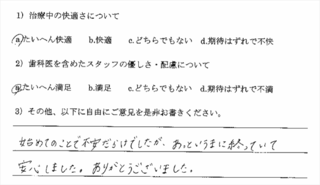 1）治療中の快適さについて
a.たいへん快適　b.快適　c.どちらでもない　d.期待はずれで不快
2）歯科医を含めたスタッフの優しさ・配慮について
a.たいへん満足　b.満足　c.どちらでもない　d.期待はずれで不満
3）その他、以下に自由にご意見を是非お書きください。
始めてのことで不安だらけでしたが、あっというまに終っていて
安心しました。ありがとうございました。